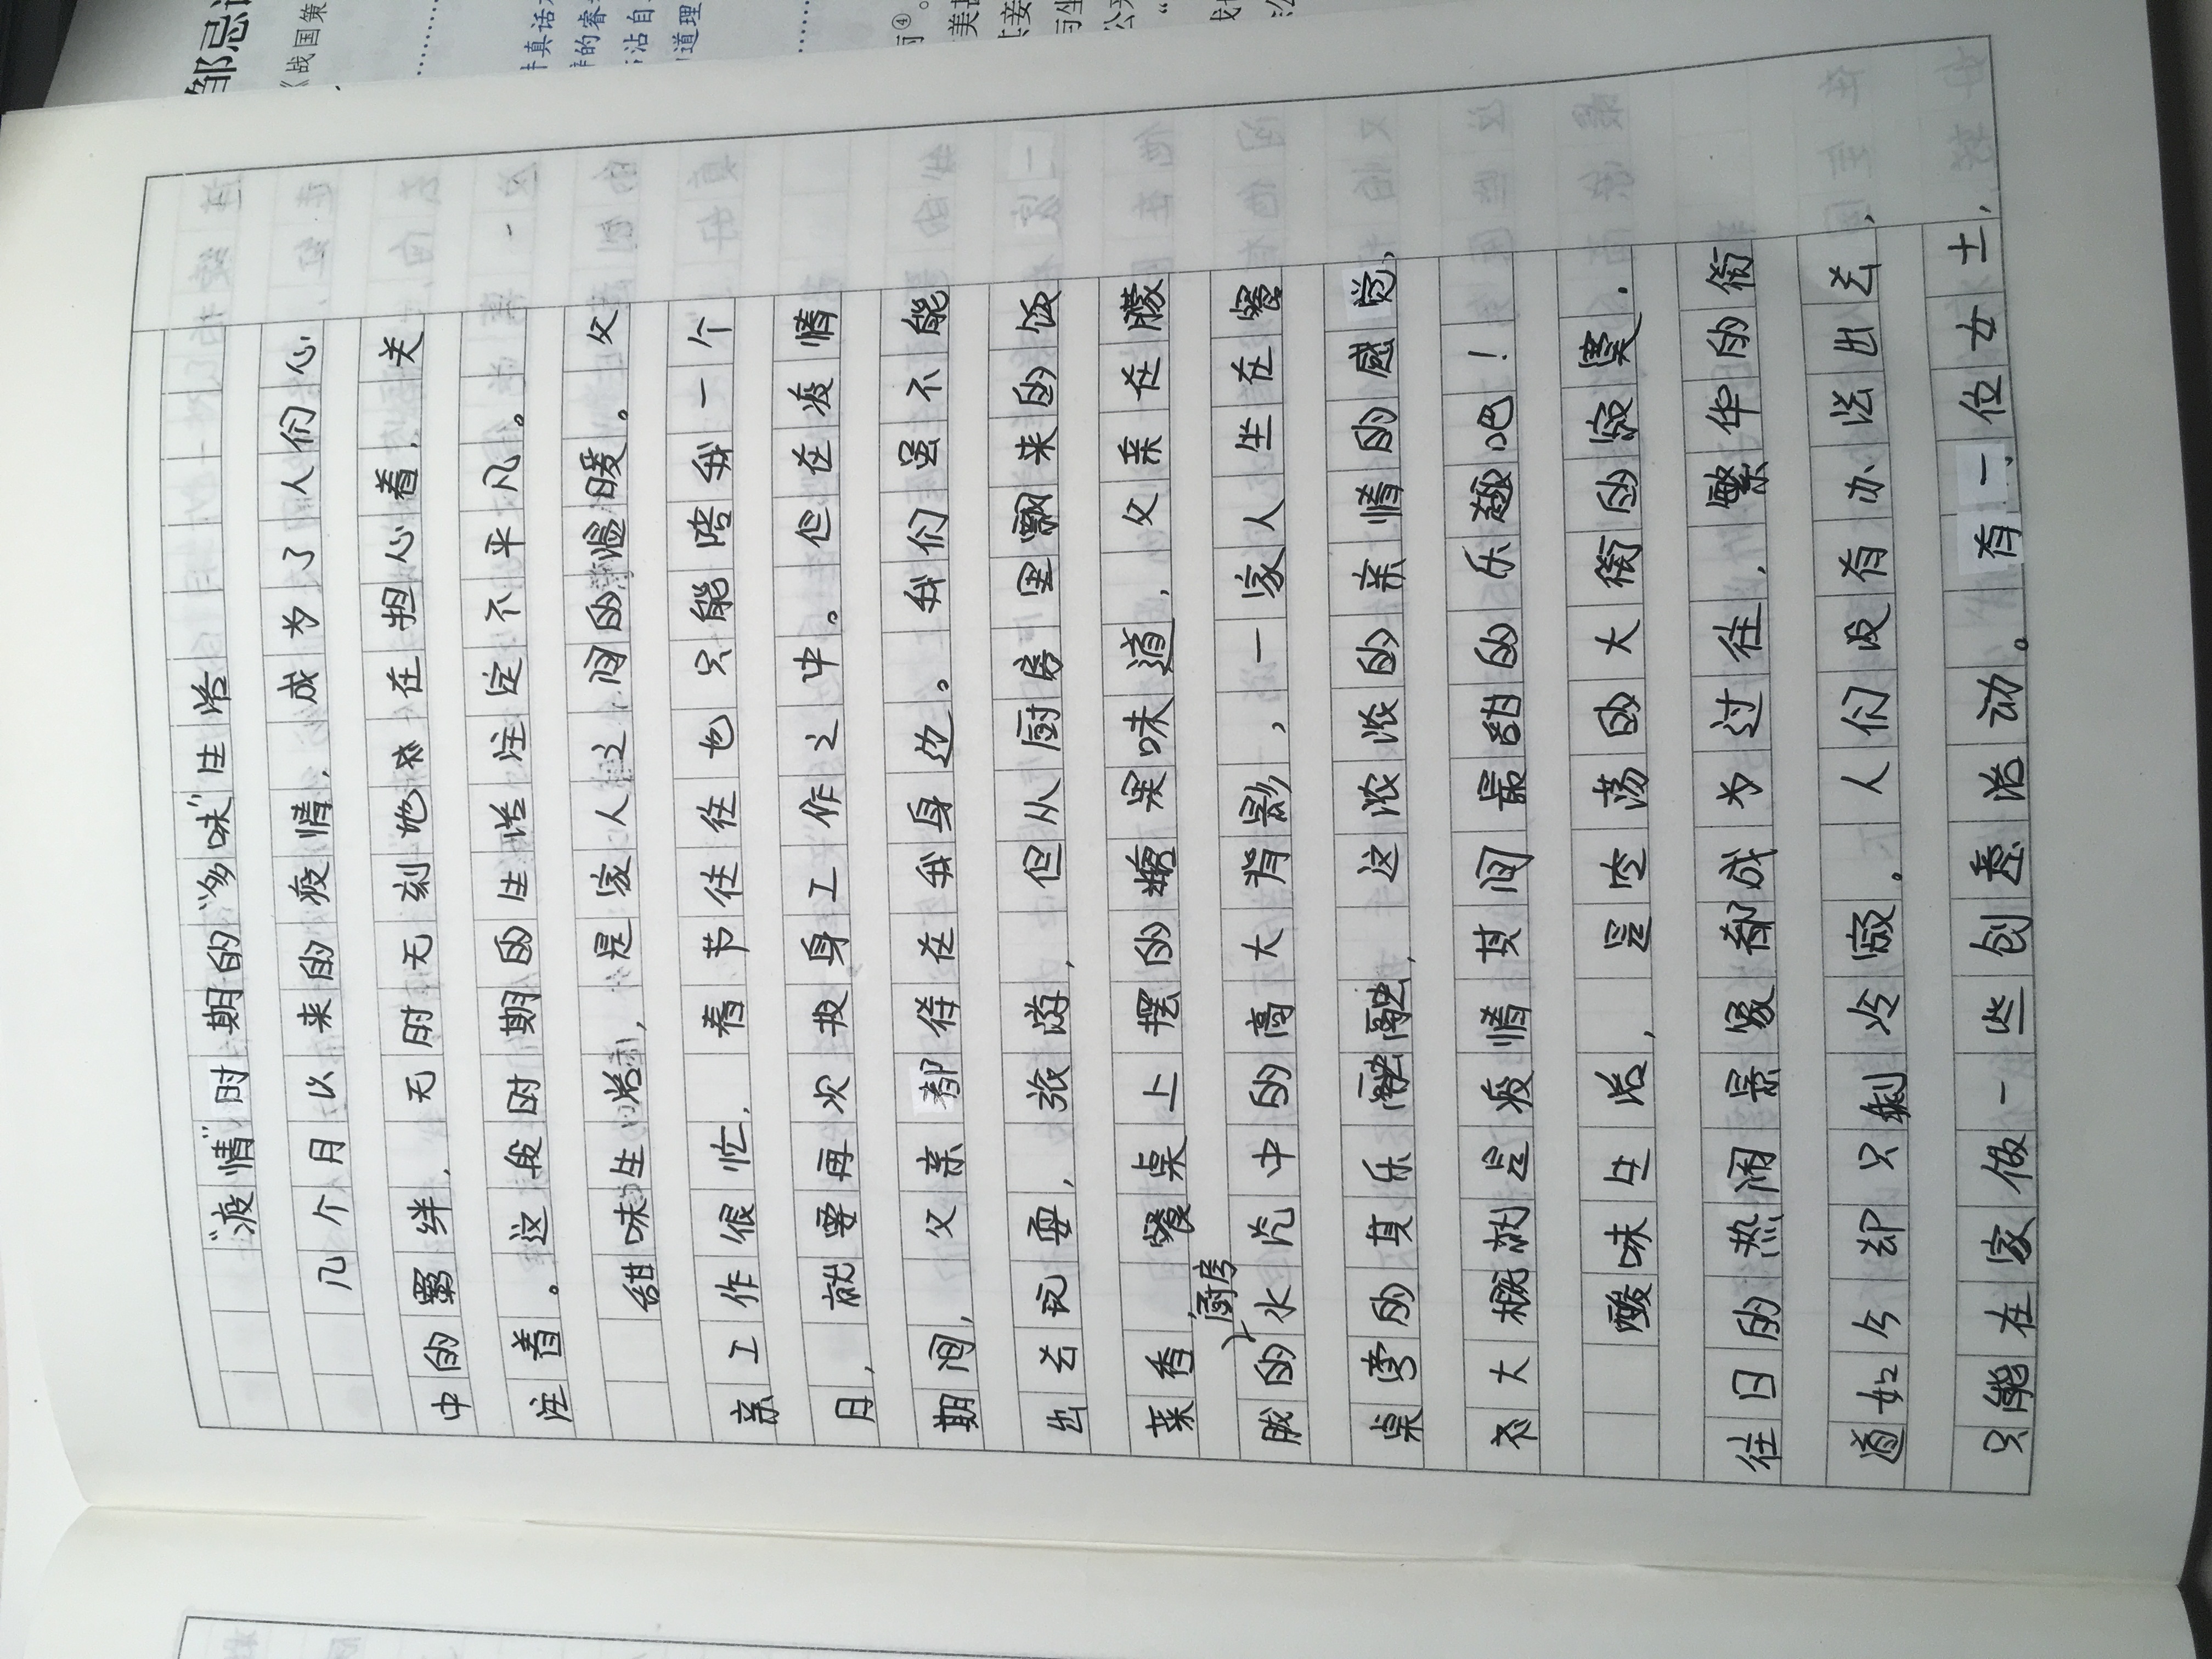 “疫情”时期的“多味”生活
几个月以来的疫情,成为了人们心
中的羁绊,无时无刻地不在担心着,关
注着。这段时期的生活注定不平凡。
甜味生活,是家人之间的温暖。父
亲工作很忙,春节往往也只能陪我一个
月,就要再次投身工作之中。但在疫情
期间,父亲都得在我身边。我们虽不能
出去玩耍,旅游,但从厨房里飘来的饭
菜香,餐桌上摆的糖果味道,父亲在朦
胧的厨房水汽中的高大背影,一家人坐在餐
桌旁的其乐融融,这浓浓的亲情的感觉,
大概就是疫情其间最甜的乐趣吧!
酸味生活,是空荡的大街的寂寞.
往日的热闹景象都成为过往,繁华的街
道如今却只剩冷寂。人们没有办法出去,
只能在家做一些创意活动。有一位女士,
邹忌
《战国策
真话
的睿
沾自
道理